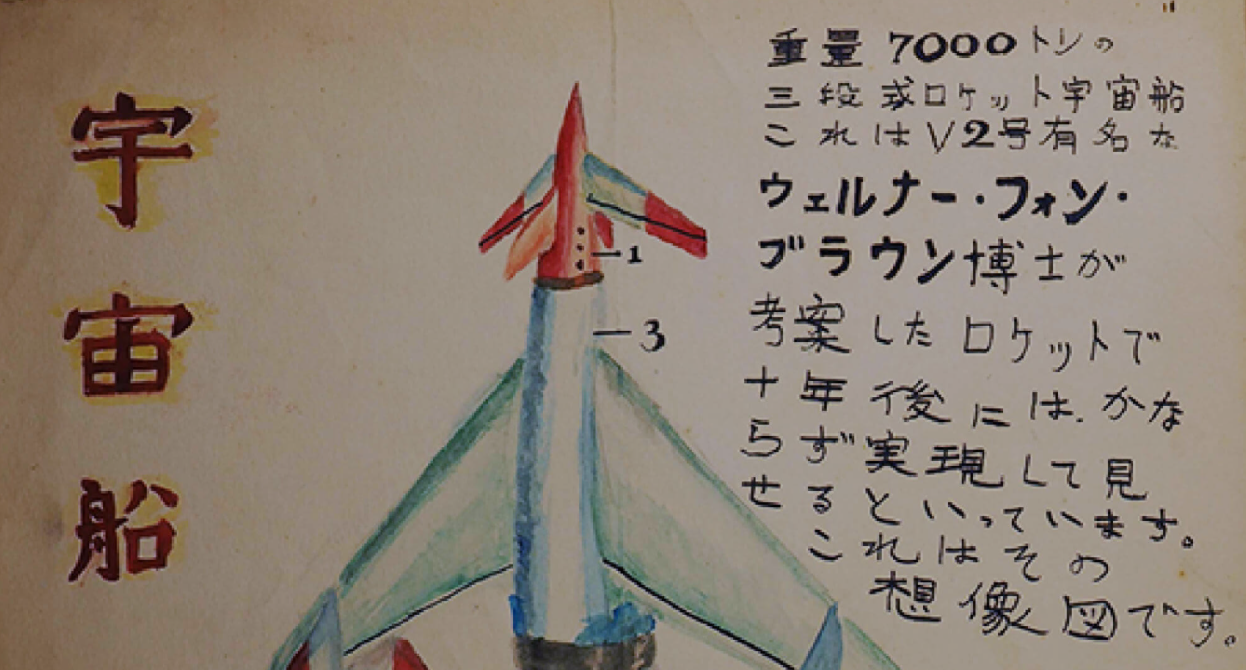 宇宙船
重量7000トンの
三段式ロケット宇宙船
これはV2号有名な
ウェルナー・フォン・
ブラウン博士が
考案したロケットで
十年後には.かな
らず実現して見
せるといっています。
これはその
想像図です。
1
3